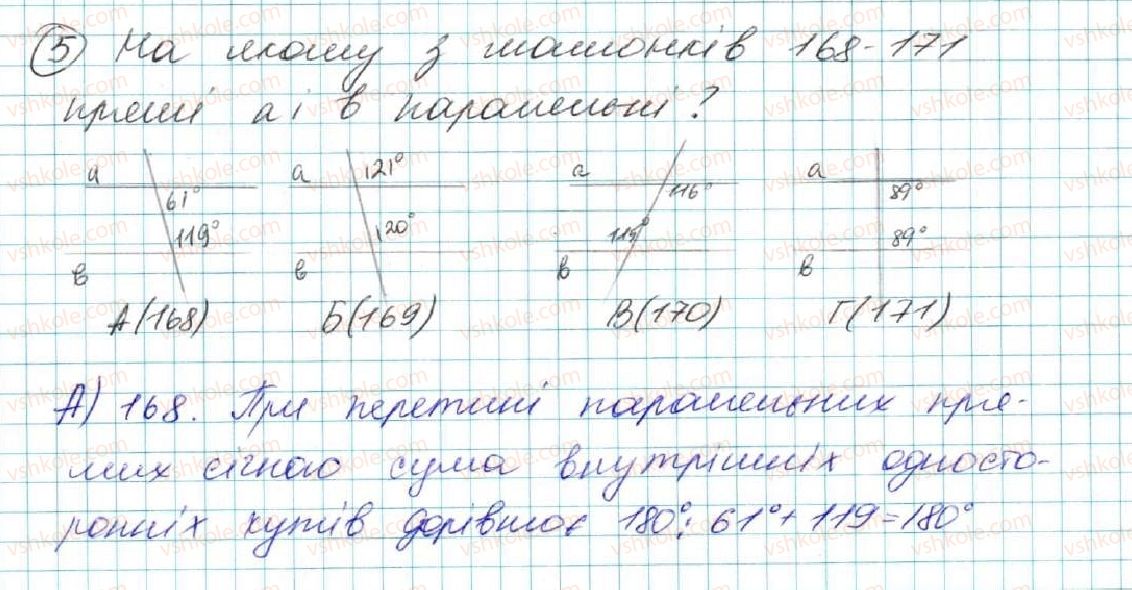 5 На якому з малюнків 168-171
прямі а і в паралельні?
а 61° 119° в
а 121° 120° в
а 116° 119° в
а 89° 89° в
А(168) Б(169) В(170) Г(171)
А) 168. При перетині паралельних пря-
мих січною сума внутрішніх односто-
ронніх кутів дорівнює 180°: 61°+119=180°